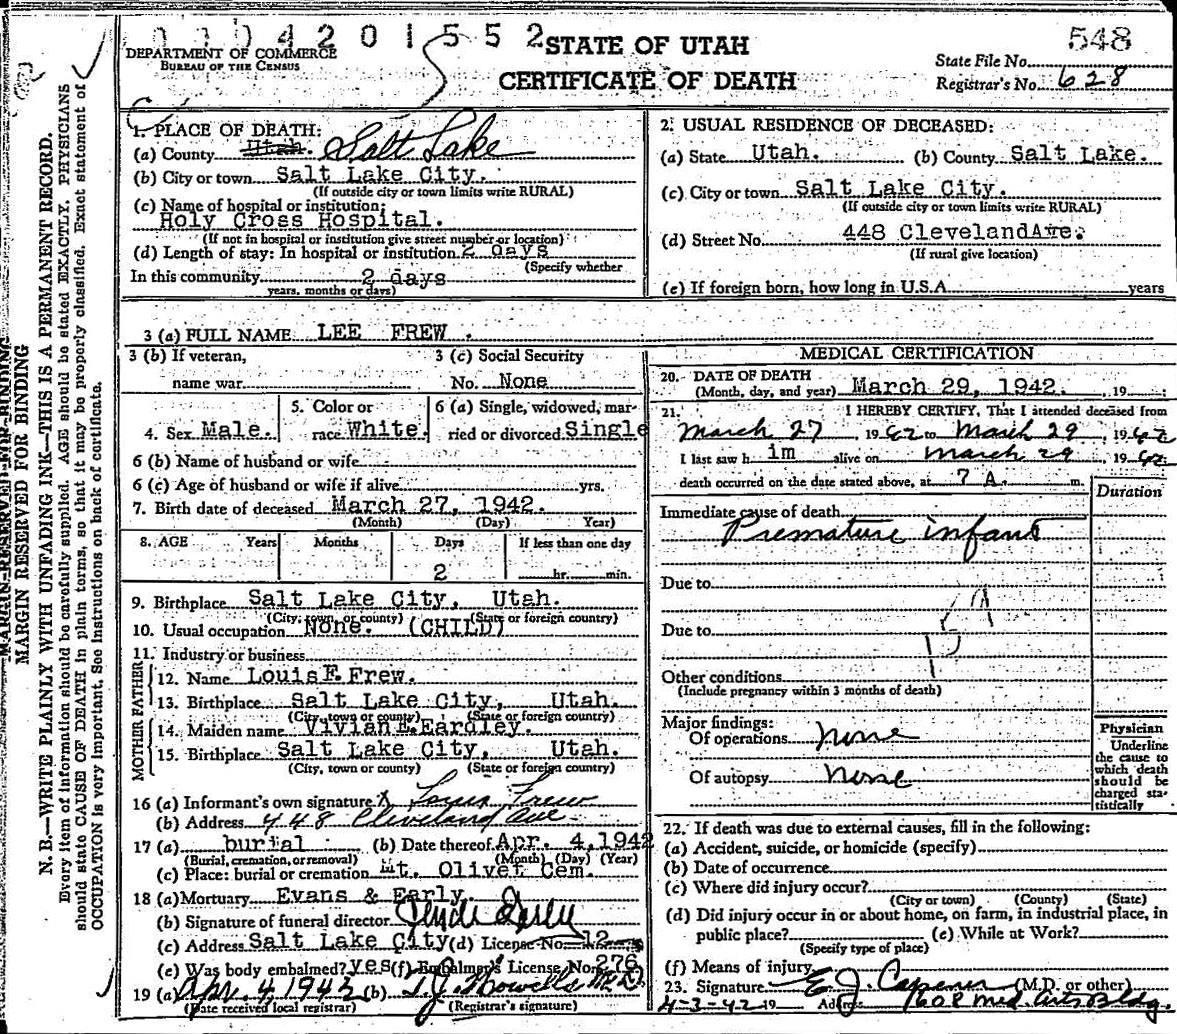 0 0 4 2 0 1 5 5 2
548
DEPARTMENT OF COMMERCE
BUREAU OF THE CENSUS
STATE OF UTAH
CERTIFICATE OF DEATH
State File No.
Registrar's No. 628
MARGIN RESERVED FOR BINDING
N. B.—WRITE PLAINLY WITH UNFADING INK—THIS IS A PERMANENT RECORD.
Every item of information should be carefully supplied. AGE should be stated EXACTLY. PHYSICIANS
should state CAUSE OF DEATH in plain terms, so that it may be properly classified. Exact statement of
OCCUPATION is very important. See instructions on back of certificate.
1. PLACE OF DEATH:
(a) County Utah. Salt Lake
(b) City or town Salt Lake City.
(If outside city or town limits write RURAL)
(c) Name of hospital or institution:
Holy Cross Hospital.
(If not in hospital or institution give street number or location)
(d) Length of stay: In hospital or institution 2 days
(Specify whether
In this community 2 days
years, months or days)
2. USUAL RESIDENCE OF DECEASED:
(a) State Utah. (b) County Salt Lake.
(c) City or town Salt Lake City.
(If outside city or town limits write RURAL)
(d) Street No. 448 Cleveland Ave.
(If rural give location)
(e) If foreign born, how long in U.S.A. years
3 (a) FULL NAME LEE FREW .
3 (b) If veteran,
name war
3 (c) Social Security
No. None
4. Sex Male.
5. Color or
race White
6 (a) Single, widowed, mar-
ried or divorced Single
6 (b) Name of husband or wife
6 (c) Age of husband or wife if alive yrs.
7. Birth date of deceased March 27, 1942.
(Month) (Day) Year)
8. AGE Years Months Days If less than one day
2 hr. min.
9. Birthplace Salt Lake City, Utah.
(City, town, or county) (State or foreign country)
10. Usual occupation None. (CHILD)
11. Industry or business
FATHER
12. Name Louis F. Frew.
13. Birthplace Salt Lake City, Utah.
(City, town or county) (State or foreign country)
MOTHER
14. Maiden name Vivian E. Eardley.
15. Birthplace Salt Lake City, Utah.
(City, town or county) (State or foreign country)
16 (a) Informant's own signature X Louis Frew
(b) Address 448 Cleveland Ave
17 (a) burial (b) Date thereof Apr. 4, 1942
(Burial, cremation, or removal) (Month) (Day) (Year)
(c) Place: burial or cremation Mt. Olivet Cem.
18 (a) Mortuary Evans & Early
(b) Signature of funeral director
(c) Address Salt Lake City (d) License No. 12
(e) Was body embalmed? yes (f) Embalmer's License No. 276
19 (a) Apr. 4, 1942 (b) T.J. Howells M.D.
(Date received local registrar) (Registrar's signature)
MEDICAL CERTIFICATION
20. DATE OF DEATH
(Month, day, and year) March 29, 1942. , 19
21. I HEREBY CERTIFY, That I attended deceased from
March 27 , 1942 to March 29 , 1942
I last saw h im alive on March 29 , 1942
death occurred on the date stated above, at 7 A. m.
Duration
Immediate cause of death
Premature infant
Due to
Due to
Other conditions
(Include pregnancy within 3 months of death)
Major findings:
Of operations none
Of autopsy none
Physician
Underline
the cause to
which death
should be
charged sta-
tistically
22. If death was due to external causes, fill in the following:
(a) Accident, suicide, or homicide (specify)
(b) Date of occurrence
(c) Where did injury occur?
(City or town) (County) (State)
(d) Did injury occur in or about home, on farm, in industrial place, in
public place? (e) While at Work?
(Specify type of place)
(f) Means of injury
23. Signature E. J. (M.D. or other)
4-3-42 19 Address Med Arts Bldg.